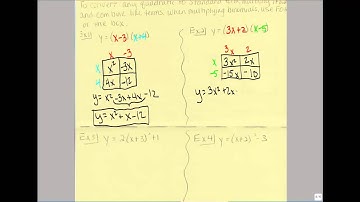 To convert any quadratic to standard form, multiply
and combine like terms. When multiplying binomials, use FOIL
or the box.
Ex1) y = (x-3)(x+4)
x -3
x x² -3x
4 4x -12
y = x² -3x+4x -12
y = x² + x - 12
Ex2) y = (3x+2)(x-5)
3x 2
x 3x² 2x
-5 -15x -10
y = 3x² + 2x
Ex3) y = 2(x+3)² + 1
Ex4) y = (x+2)² - 3